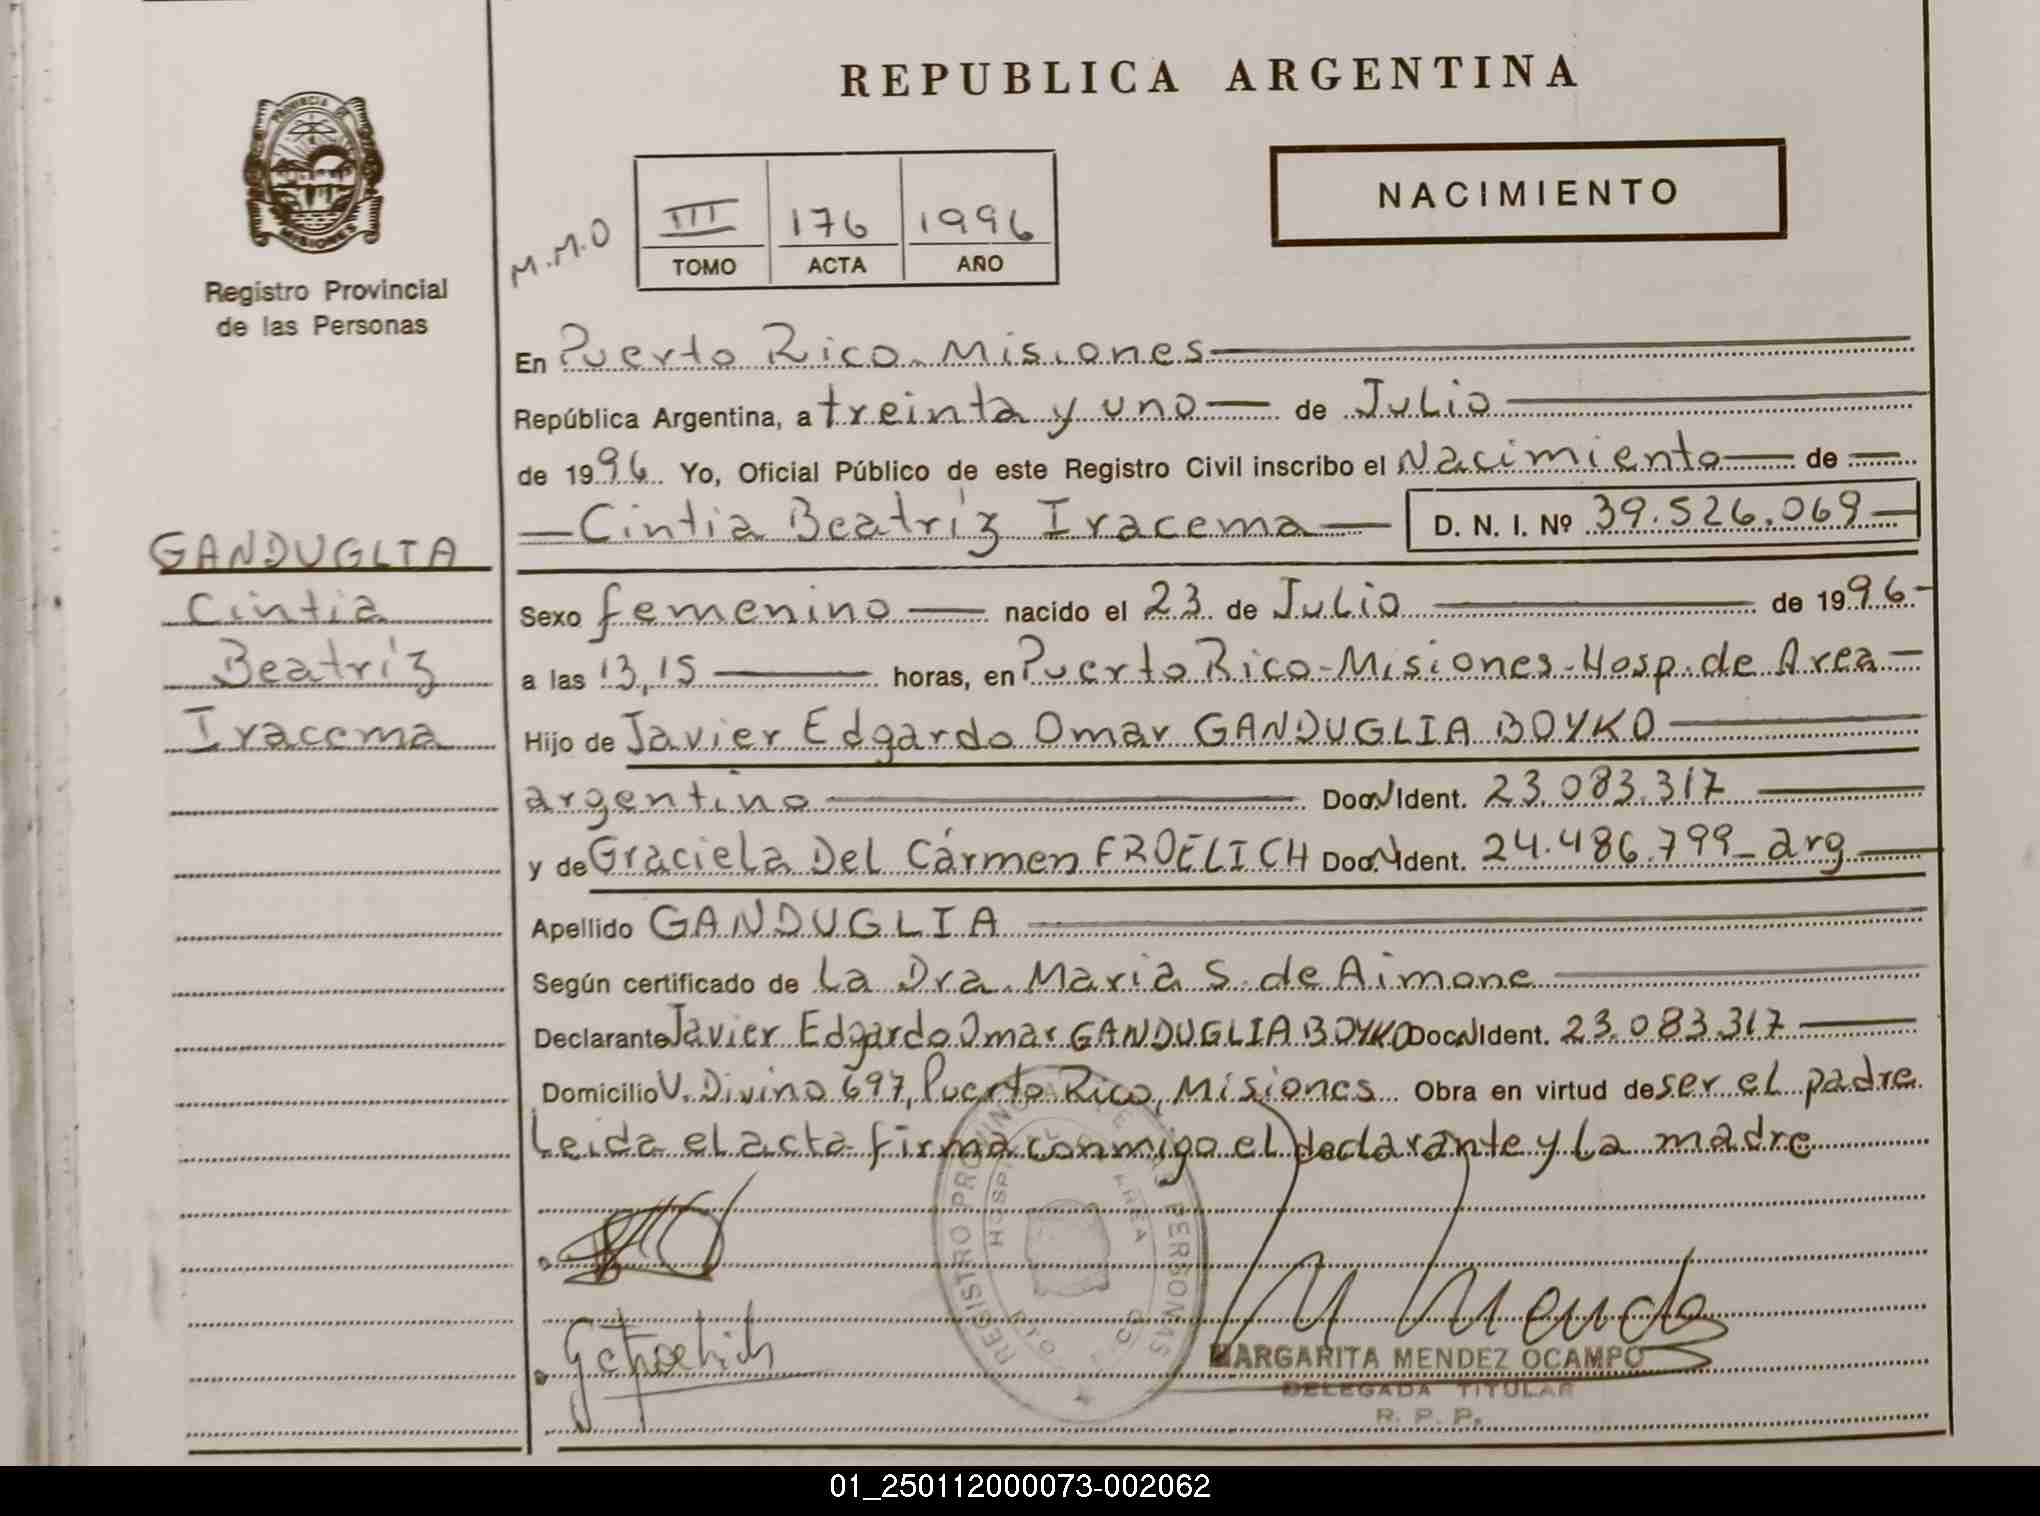 REPUBLICA ARGENTINA
PROVINCIA DE MISIONES
Registro Provincial
de las Personas
M.M.O
III 176 1996
TOMO ACTA AÑO
NACIMIENTO
En Puerto Rico - Misiones
República Argentina, a treinta y uno de Julio
de 1996 Yo, Oficial Público de este Registro Civil inscribo el Nacimiento de
Cintia Beatríz Iracema D. N. I. Nº 39.526.069
GANDUGLIA
Cintia
Beatríz
Iracema
Sexo femenino nacido el 23 de Julio de 1996
a las 13,15 horas, en Puerto Rico - Misiones - Hosp. de Area
Hijo de Javier Edgardo Omar GANDUGLIA BOYKO
argentino Doc. Ident. 23.083.317
y de Graciela Del Cármen FROELICH Doc. Ident. 24.486.799 - arg
Apellido GANDUGLIA
Según certificado de La Dra. Maria S. de Aimone
Declarante Javier Edgardo Omar GANDUGLIA BOYKO Doc. Ident. 23.083.317
Domicilio V. Divino 697, Puerto Rico, Misiones Obra en virtud de ser el padre
Leida el acta firma conmigo el declarante y la madre
REGISTRO PROVINCIAL DE LAS PERSONAS
HOSPITAL AREA
PTO RICO
MARGARITA MENDEZ OCAMPO
DELEGADA TITULAR
R. P. P.
01_250112000073-002062